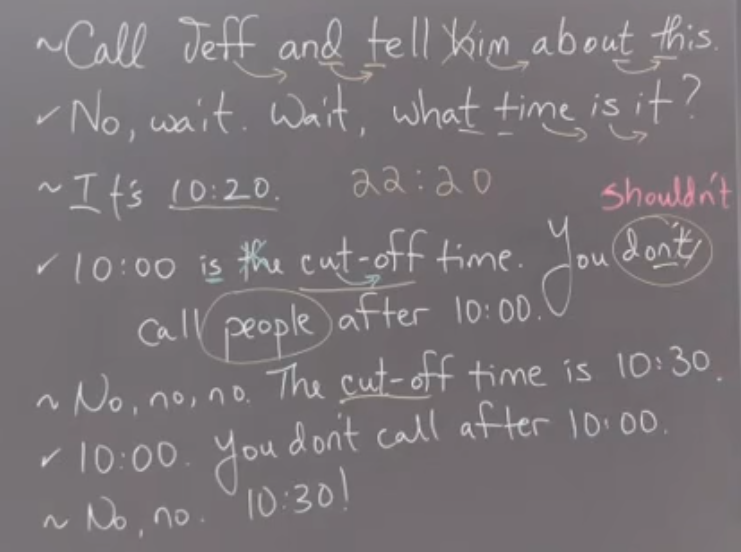 ~Call Jeff and tell him about this.
✓ No, wait. Wait, what time is it?
~It's 10:20. 22:20
shouldn't
✓ 10:00 is the cut-off time. You don't
call people after 10:00.
~ No, no, no. The cut-off time is 10:30.
✓ 10:00. You don't call after 10:00.
~ No, no. 10:30!